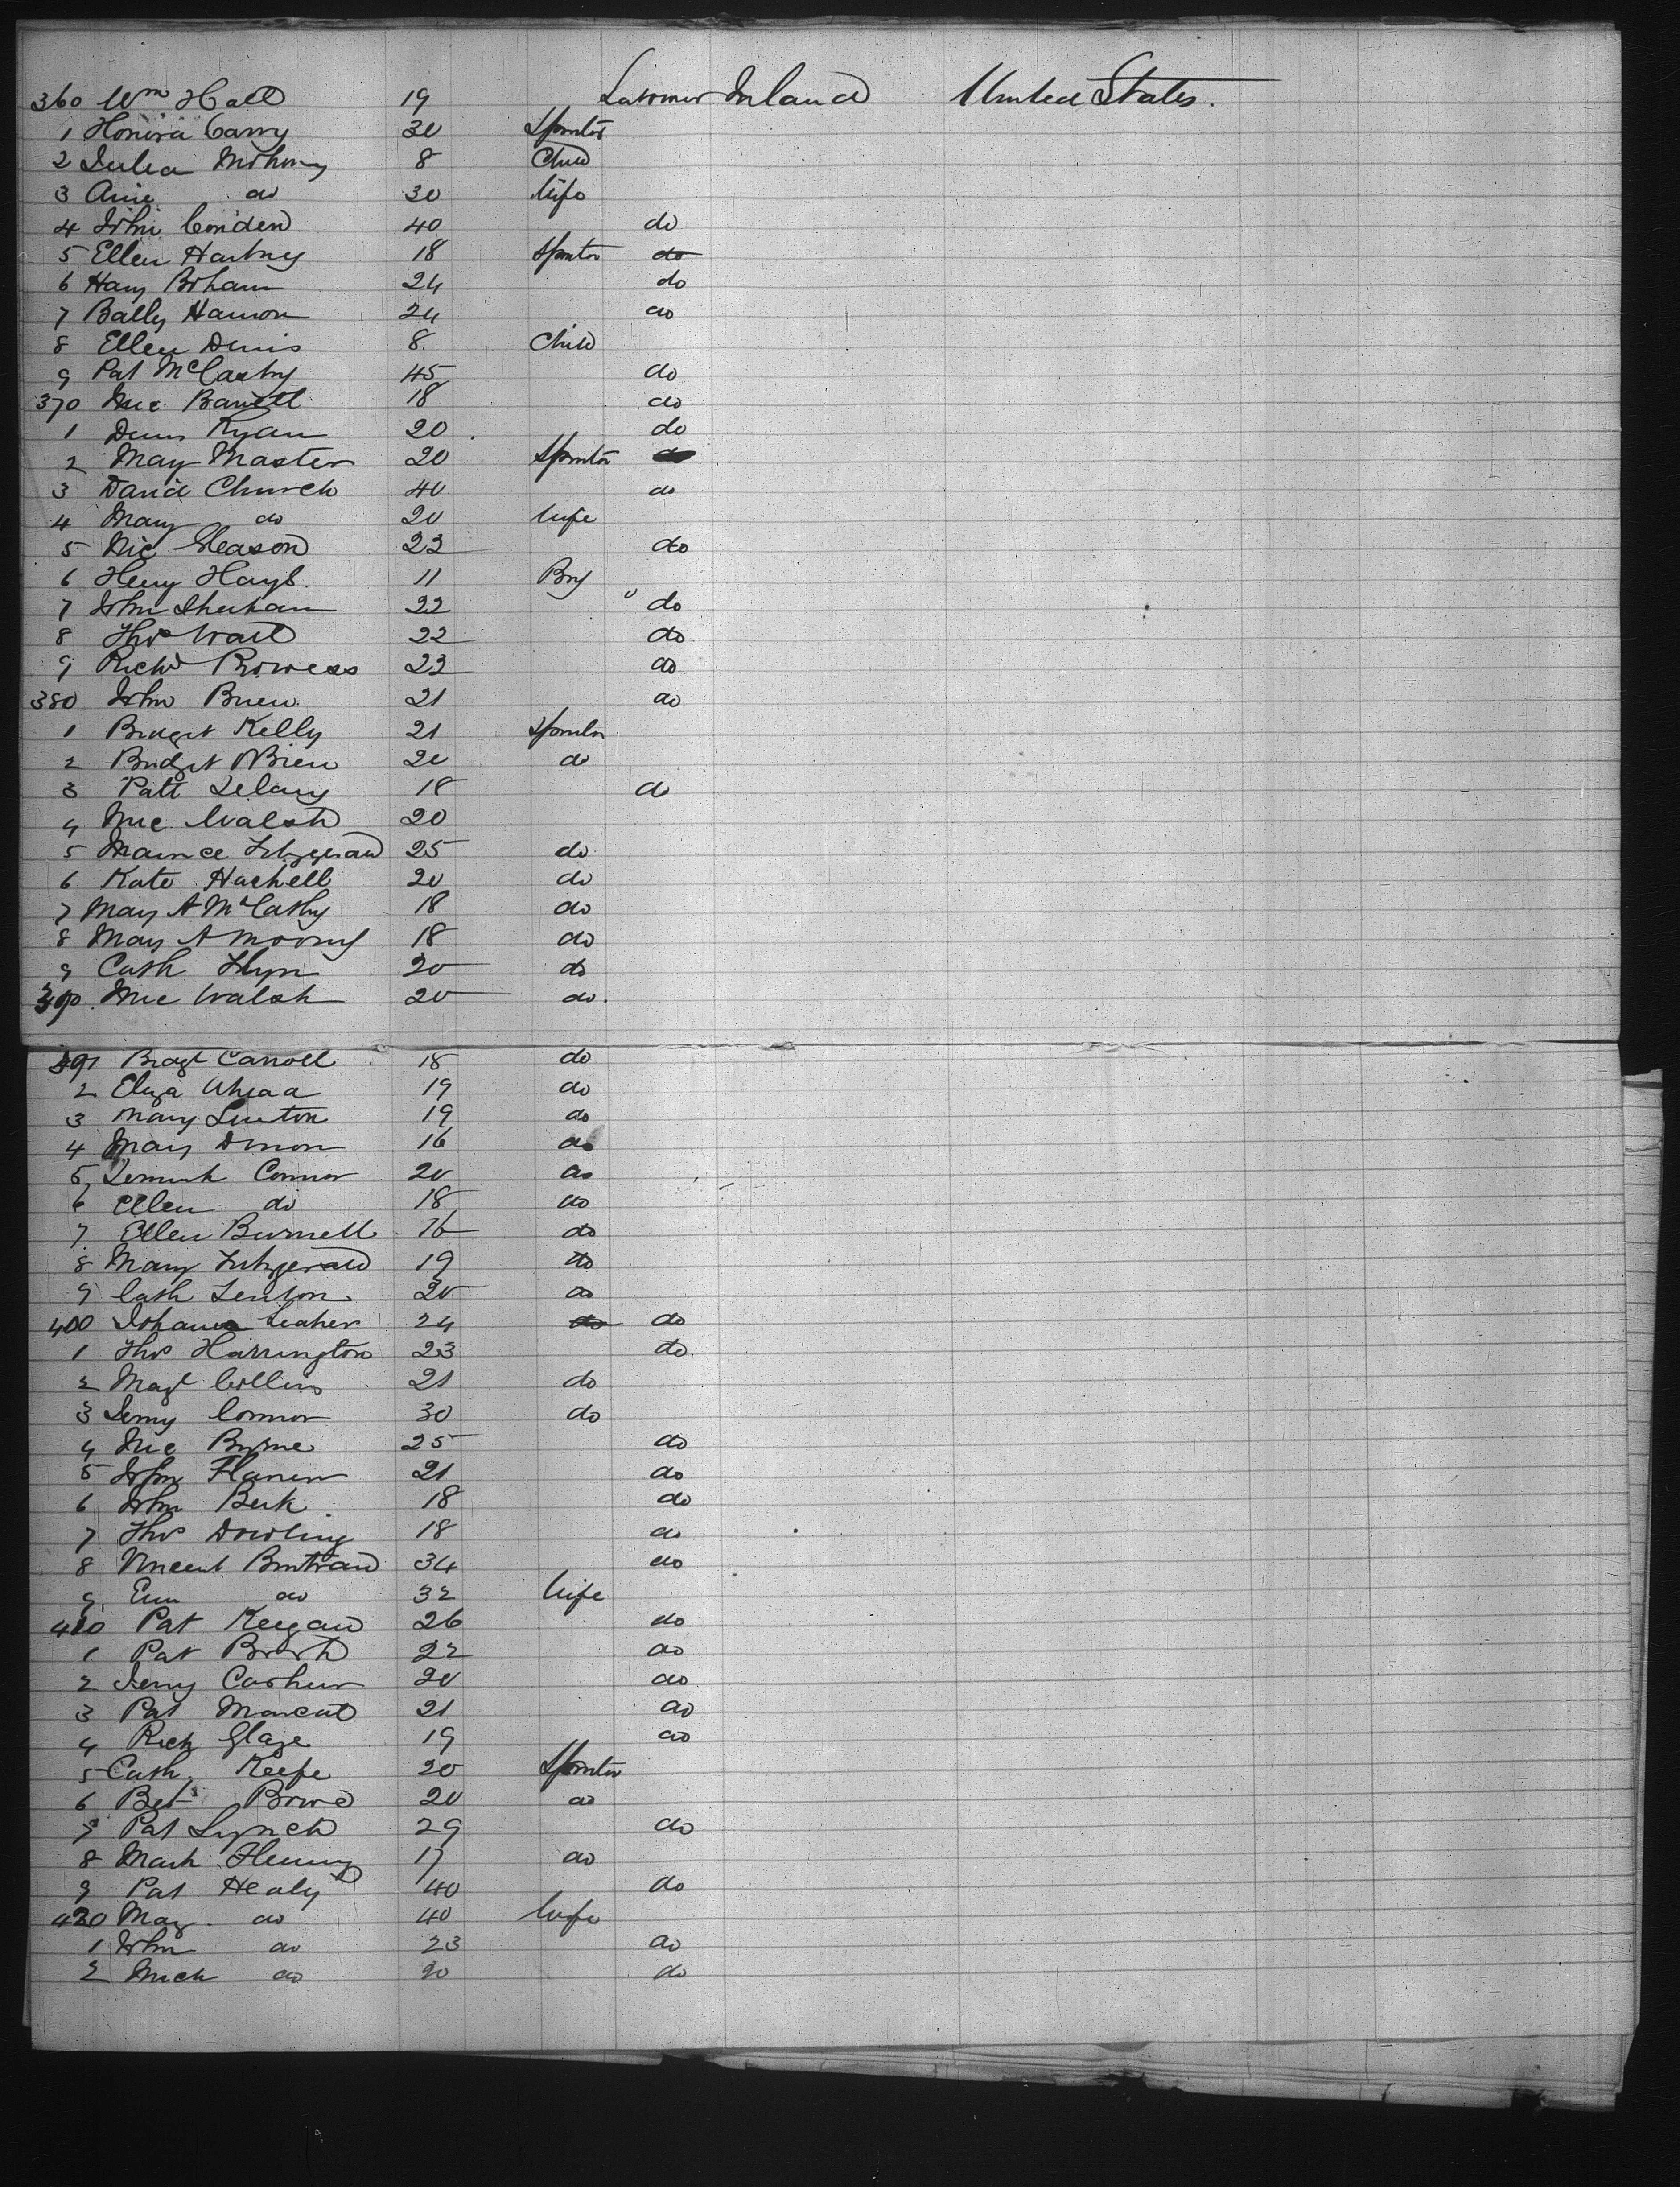 360 Wm Hall 19 Labourer Ireland United States.
1 Honora Carry 30 Spinster
2 Julia Mohony 8 Child
3 Ann do 30 Wife
4 John Conden 40 do
5 Ellen Hartney 18 Spinster do
6 Hany Boham 24 do
7 Hanon 24 do
8 Ellen Denis 8 Child
9 Pat McCarthy 45 do
370 Mic Barrett 18 do
1 Denis Ryan 20 do
2 May Master 20 Spinster
3 David Church 40 do
4 Mary do 20 Wife
5 Mic Gleason 22 do
6 Henry Hays 11 Boy
7 John Sheehan 22 do
8 Thos Wall 22 do
9 Richd Prowess 22 do
380 John Brien 21 do
1 Bridget Kelly 21 Spinster
2 Bridget OBrien 20 do
3 Patt Delany 18 do
4 Mic Walsh 20
5 Maurice Fitzgerald 25 do
6 Kate Hachell 20 do
7 May A McCathy 18 do
8 May A Moony 18 do
9 Cath Flyn 20 do
390 Mic Walsh 20 do.
391 Bragt Carroll 18 do
2 Eliza 19 do
3 Mary Linton 19 do
4 Mary 16 do
5 Connor 20 do
6 Ellen do 18 do
7 Ellen Burnell 16 do
8 Mary Fitzgerald 19 do
9 Cath Lenton 20 do
400 Johanna Leaher 24 do do
1 Thos Harrington 23 do
2 Magt Collins 21 do
3 Jerry Connor 30 do
4 Mic Byrne 25 do
5 John Flanen 21 do
6 John Berk 18 do
7 Thos Dowling 18 do
8 Vincent Bertrand 34 do
9 Em do 32 Wife
410 Pat Keegan 26 do
1 Pat 22 do
2 Jerry Cashen 20 do
3 Pat 21 do
4 Rich Glaze 19 do
5 Cath Keefe 20 Spinster
6 Bet 20 do
7 Pat Lynch 29 do
8 17 do
9 Pat Healy 40 do
420 May do 40 Wife
1 John do 23 do
2 Mich do 20 do